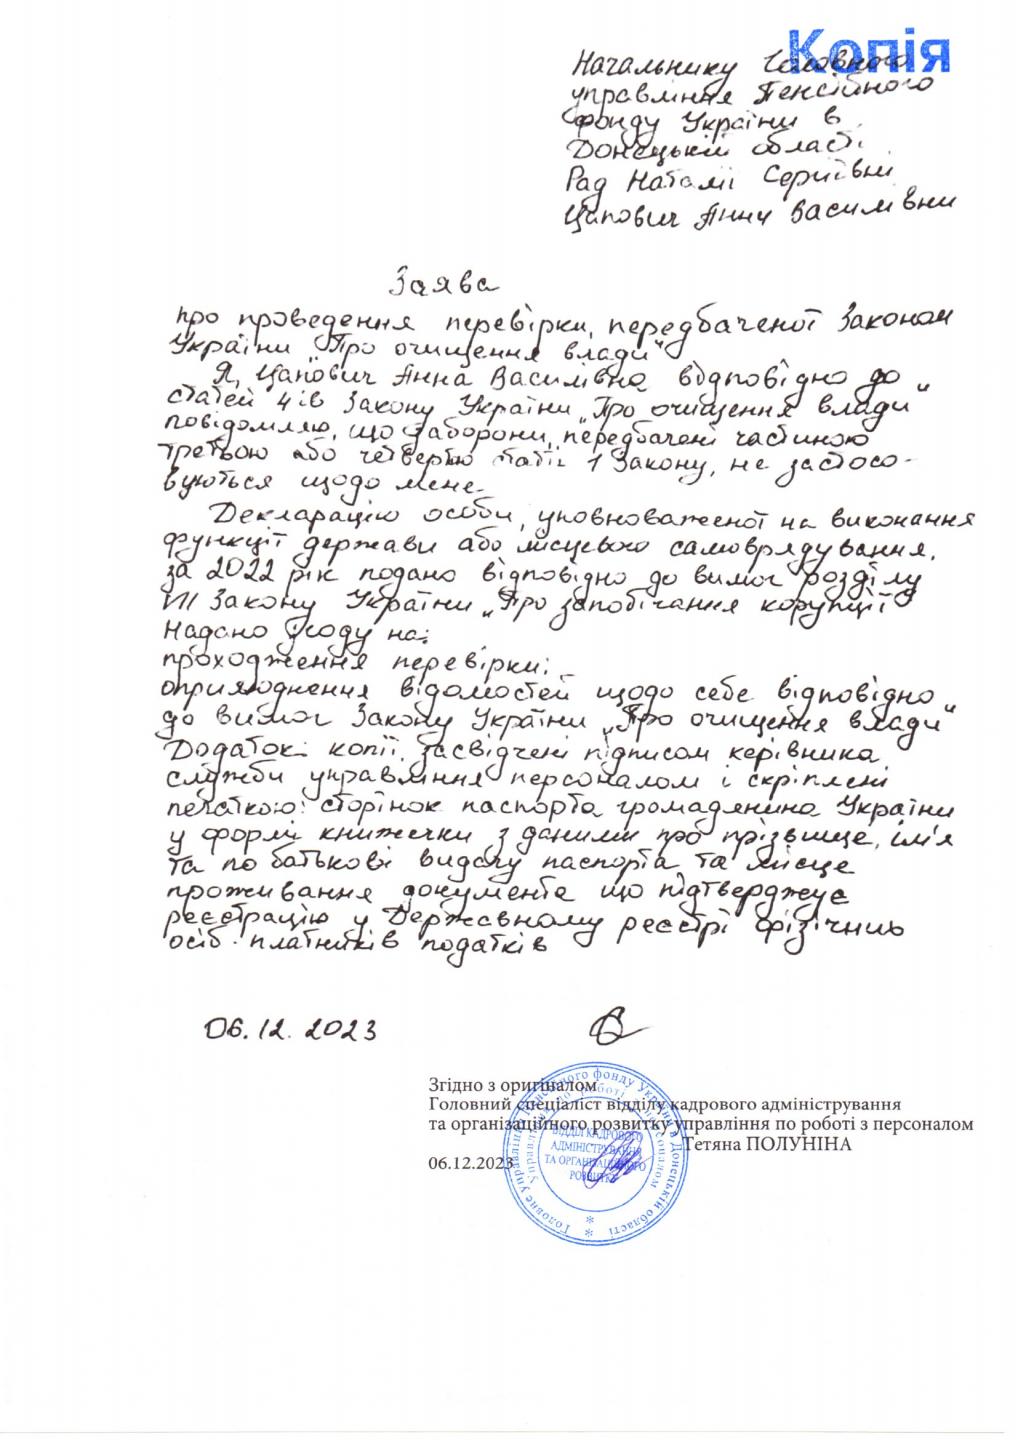 Копія
Начальнику Головного
управління Пенсійного
фонду України в
Донецькій області
Рад Наталії Сергіївни
Цапович Анни Василівни
Заява
про проведення перевірки, передбаченої Законом
України „Про очищення влади"
Я, Цапович Анна Василівна відповідно до
статей 4 ів Закону України „Про очищення влади"
повідомляю, що заборони, передбачені частиною
третьою або четвертою статті 1 Закону, не застосо-
вуються щодо мене.
Декларацію особи, уповноваженої на виконання
функції держави або місцевого самоврядування,
за 2022 рік подано відповідно до вимог розділу
VII Закону України „Про запобігання корупції"
Надано згоду на:
проходження перевірки;
оприлюднення відомостей щодо себе відповідно
до вимог Закону України „Про очищення влади"
Додаток: копії, засвідчені підписом керівника
служби управління персоналом і скріплені
печаткою: сторінок паспорта громадянина України
у формі книжечки з даними про прізвище, ім'я
та по батькові видачу паспорта та місце
проживання документа що підтверджує
реєстрацію у Державному реєстрі фізичних
осіб - платників податків
06.12.2023
Згідно з оригіналом
Головний спеціаліст відділу кадрового адміністрування
та організаційного розвитку управління по роботі з персоналом
Тетяна ПОЛУНІНА
06.12.2023
Головне управління Пенсійного фонду України в Донецькій області
Управління по роботі з персоналом
ВІДДІЛ КАДРОВОГО
АДМІНІСТРУВАННЯ
ТА ОРГАНІЗАЦІЙНОГО
РОЗВИТКУ